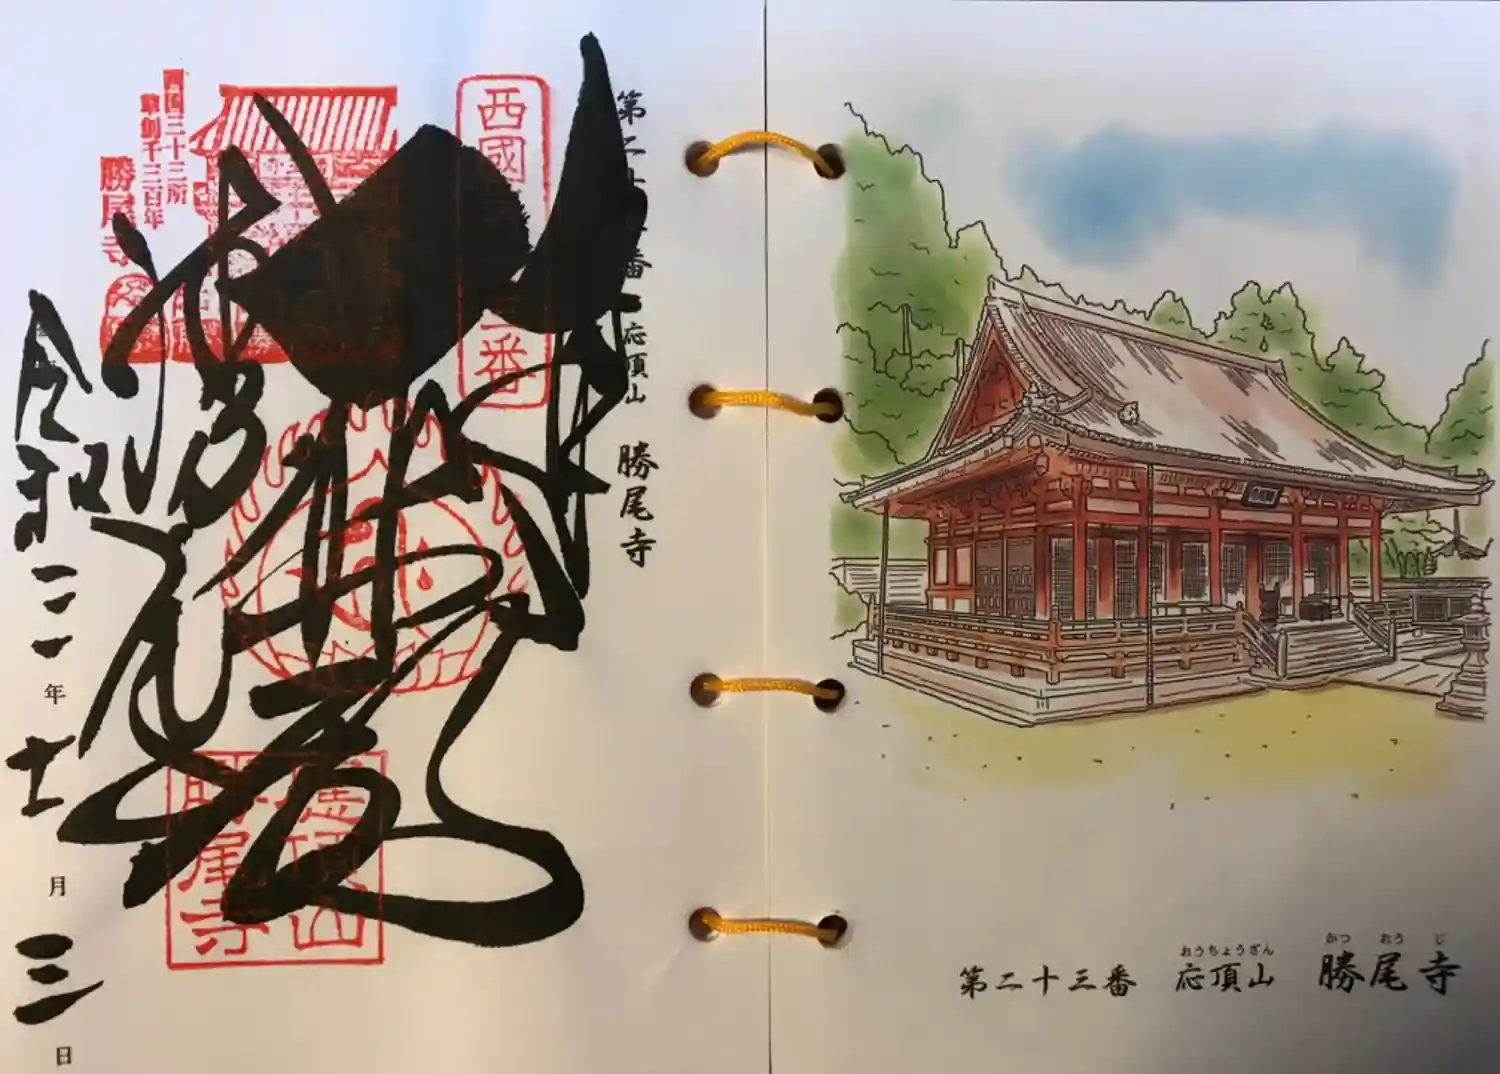 第二十三番 応頂山 勝尾寺
西國
番
西国三十三所
草創千三百年
勝尾寺
應頂山
勝尾寺
勝尾寺
令和三年十一月三日
おうちょうざん かつ おう じ
第二十三番 応頂山 勝尾寺